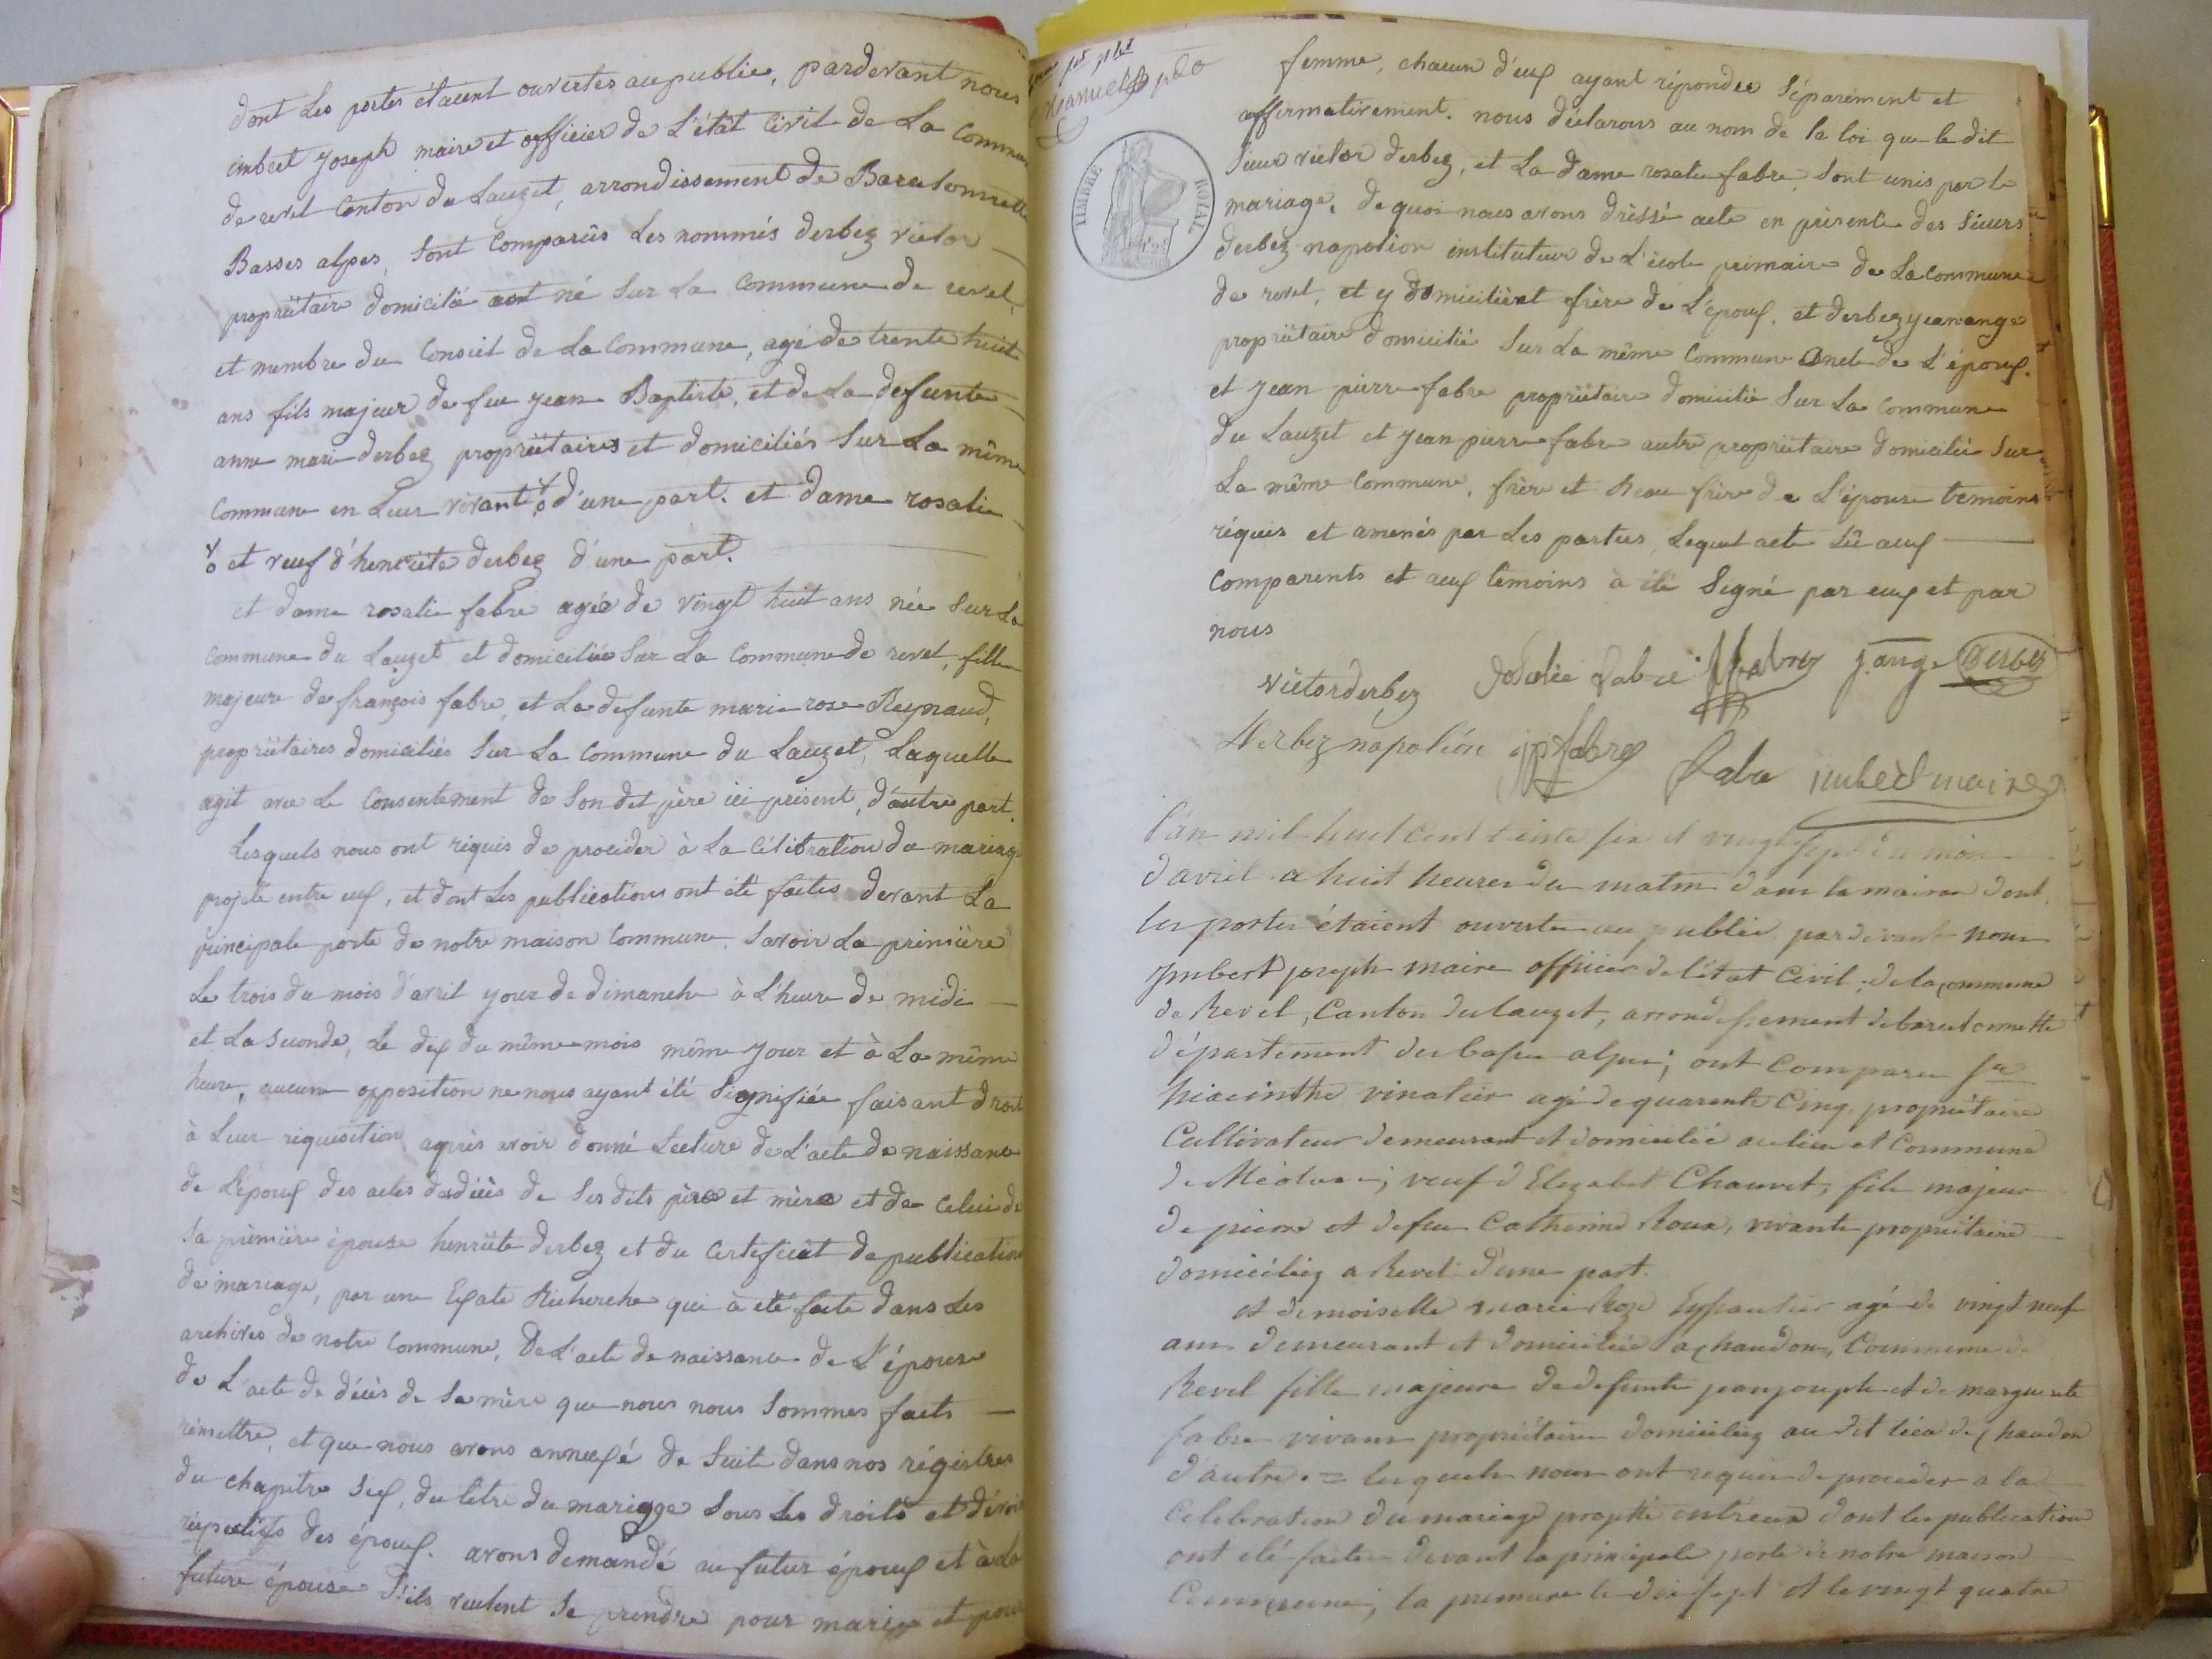 dont les portes étaient ouvertes au public, pardevant nous
imbert joseph maire et officier de L'état Civil de La Commune
de revel Canton du Lauzet, arrondissement de Barcelonnette
Basses alpes, sont Comparûs Les nommés derbez victor
propriétaire domicilié et né sur La Commune de revel,
et membre du Conseil de La Commune, agé de trente huit
ans fils majeur de feu jean Baptiste, et de La defunte
anne marie derbez propriétaires et domiciliés sur La même
Commune en Leur vivant d'une part. et dame rosalie
et veuf d'henriete derbez d'une part.
et dame rosalie fabre agée de vingt huit ans née sur La
commune du Lauzet et domiciliée sur La Commune de revel, fille
majeure de françois fabre, et La defunte marie rose Reynaud,
propriétaires domiciliés sur La Commune du Lauzet, Laquelle
agit avec Le Consentement de son dit père ici présent, d'autre part.
Lesquels nous ont réquis de procéder à La Célébration du mariage
projeté entre eux, et dont Les publications ont été faites devant La
principale porte de notre maison Commune, savoir La première
Le trois du mois d'avril jour de dimanche à L'heure de midi
et La seconde, Le dix du même mois même jour et à La même
heure, aucune opposition ne nous ayant été signifiée faisant droit
à Leur réquisition après avoir donné Lecture de L'acte de naissance
de L'époux des actes de décès de ses dits père et mère et de Celui de
sa prèmière épouse henriete derbez et du Certificat de publication
de mariage, par une Exate Recherche qui à été faite dans Les
archives de notre Commune, De L'acte de naissance de L'épouse
de L'acte de décès de sa mère que nous nous sommes faits
rémettre, et que nous avons annexé de suite dans nos régistres
du chapitre six, du titre du mariage sous Les droits et dévoirs
réspectifs des époux. avons demandé au futur époux et à La
future épouse s'ils veulent se prendre pour mari et pour
femme, chacun d'eux ayant répondu séparément et
affirmativement. nous déclarons au nom de la loi que le dit
sieur victor derbez, et La dame rosalie fabre, sont unis par le
mariage, de quoi nous avons dréssé acte en présente des sieurs
derbez napolion instituteur de L'école primaire de La Commune
de revel, et y domicilié frère de L'époux, et derbez jean ange
propriétaire domicilié sur La même Commune Oncle de L'époux.
et jean pierre fabre propriétaire domicilié sur La Commune
du Lauzet et jean pierre fabre autre propriétaire domicilié sur
La même Commune, frère et Beau frère de L'épouse temoins
réquis et amenés par Les parties, Lequel acte Lû aux
Comparents et aux temoins à été signé par eux et par
nous
TIMBRE ROYAL
victor derbez Rosalie fabre fabre j. ange Derbez
Derbez napoléon jp fabre fabre imbert maire
L'an mil huit cent trente six et vingt sept du mois
d'avril a huit heures du matin dans la mairie dont
les portes étaient ouvertes au public pardevant nous
Imbert joseph maire officier de l'état Civil, de la commune
de Revel, Canton du lauzet, arrondissement de barcelonnette
département des basses alpes; ont Comparu sr
hiacinthe vinatier agé de quarente Cinq propriétaire
Cultivateur demeurant et domicilié au lieu et Commune
de Méolans; veuf d'Elizabet Chauvet, fils majeur
de pierre et de feu Catherine Roux, vivante propriétaire
domiciliez a Revel d'une part.
et demoiselle marie Roze Eyssautier agé de vingt neuf
ans demeurant et domiciliée a chaudon, Commune de
Revel fille majeure de defunts jean joseph et de marguerite
fabre vivans propriétaires domiciliez au dit lieu de chaudon
d'autre. = lesquels nous ont requis de proceder a la
Celebration du mariage projetté entreux dont les publications
ont été faites devant la principale porte de notre maison
Commune, la premiere le dix sept et le vingt quatre